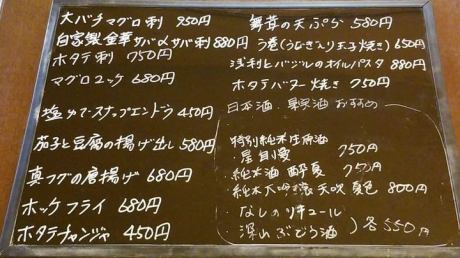 大バチマグロ刺 950円
自家製金華サバ〆サバ刺 880円
ホタテ刺 750円
マグロユッケ 680円
塩ゆでスナップエンドウ 450円
茄子と豆腐の揚げ出し 580円
真フグの唐揚げ 680円
ホッケフライ 680円
ホタテチャンジャ 450円
舞茸の天ぷら 580円
う巻(うなぎ入り玉子焼き) 650円
浅利とバジルのオイルパスタ 880円
ホタテバター焼き 750円
日本酒・果実酒おすすめ
特別純米生原酒
・星自慢 750円
・純米酒 酔夏 750円
・純米大吟醸 天吹 夏色 800円
・なしのリキュール
・深山ぶどう酒 )各550円